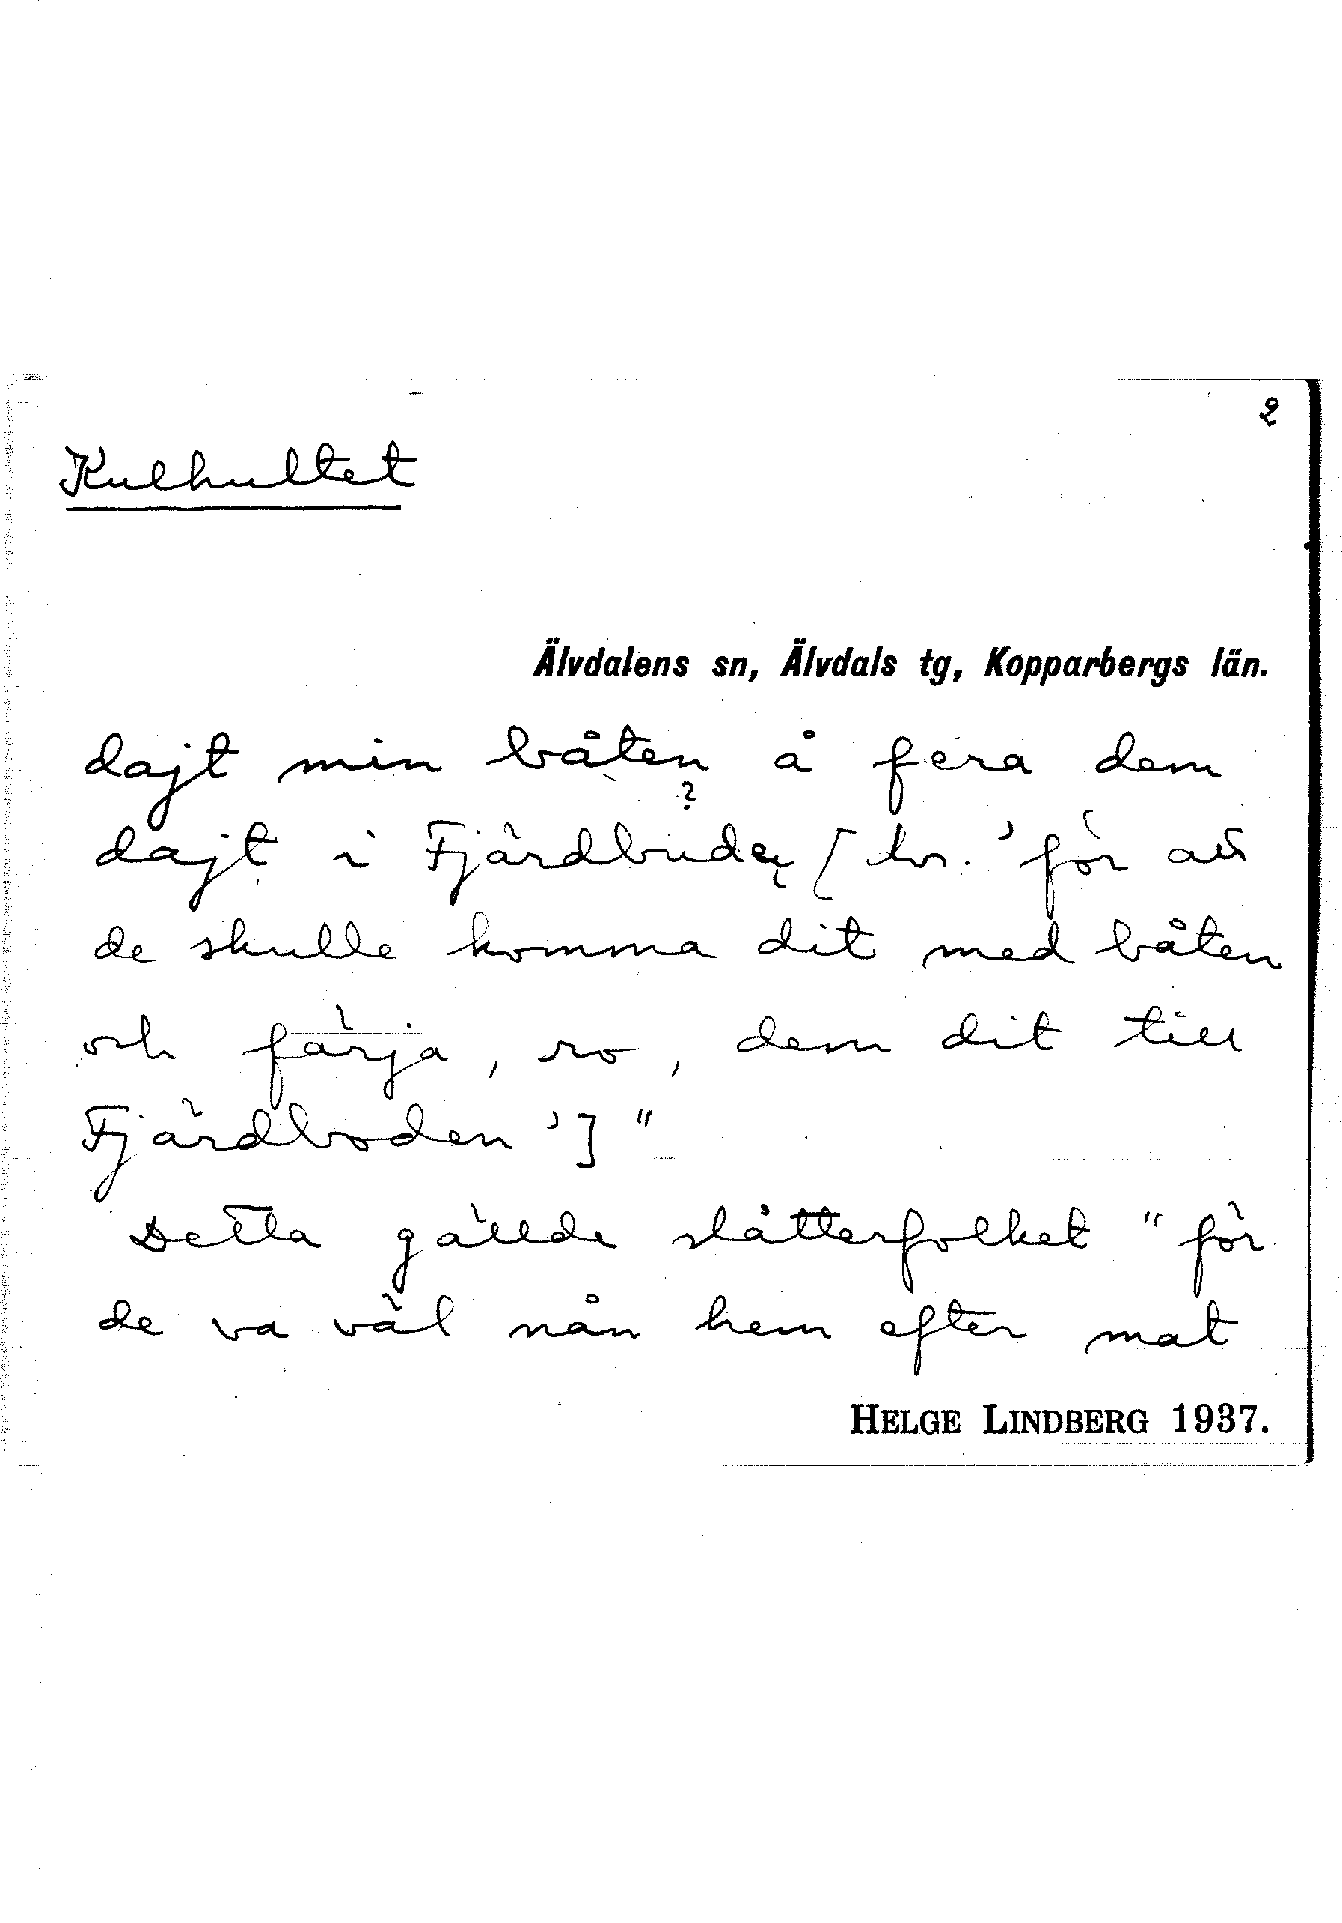 2
Kulhultet
Älvdalens sn, Älvdals tg, Kopparbergs län.
dajt min båten å fera dem
?
dajt i Fjärdbudęn [hv. 'för att
de skulle komma dit med båten
och färja, ro, dem dit till
Fjärdboden']"
Detta gällde slåtterfolket "för
de va väl nån hem efter mat
HELGE LINDBERG 1937.